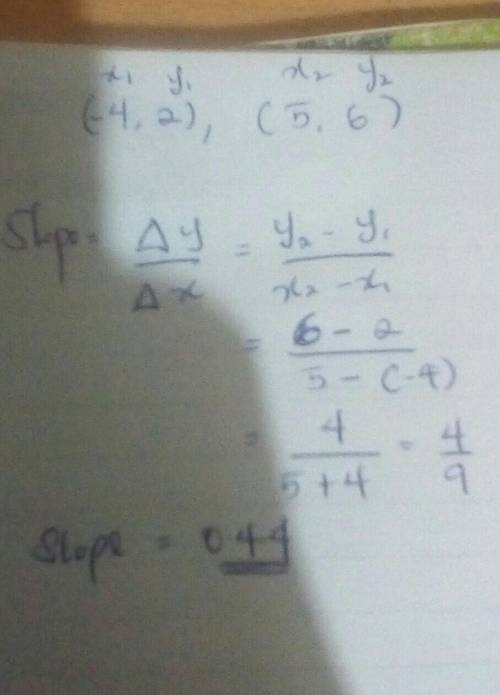 x₁ y₁ x₂ y₂
(-4, 2), (5, 6)
Slope = Δy/Δx = y₂ - y₁/x₂ - x₁
= 6 - 2/5 - (-4)
= 4/5 + 4 = 4/9
Slope = 0.44